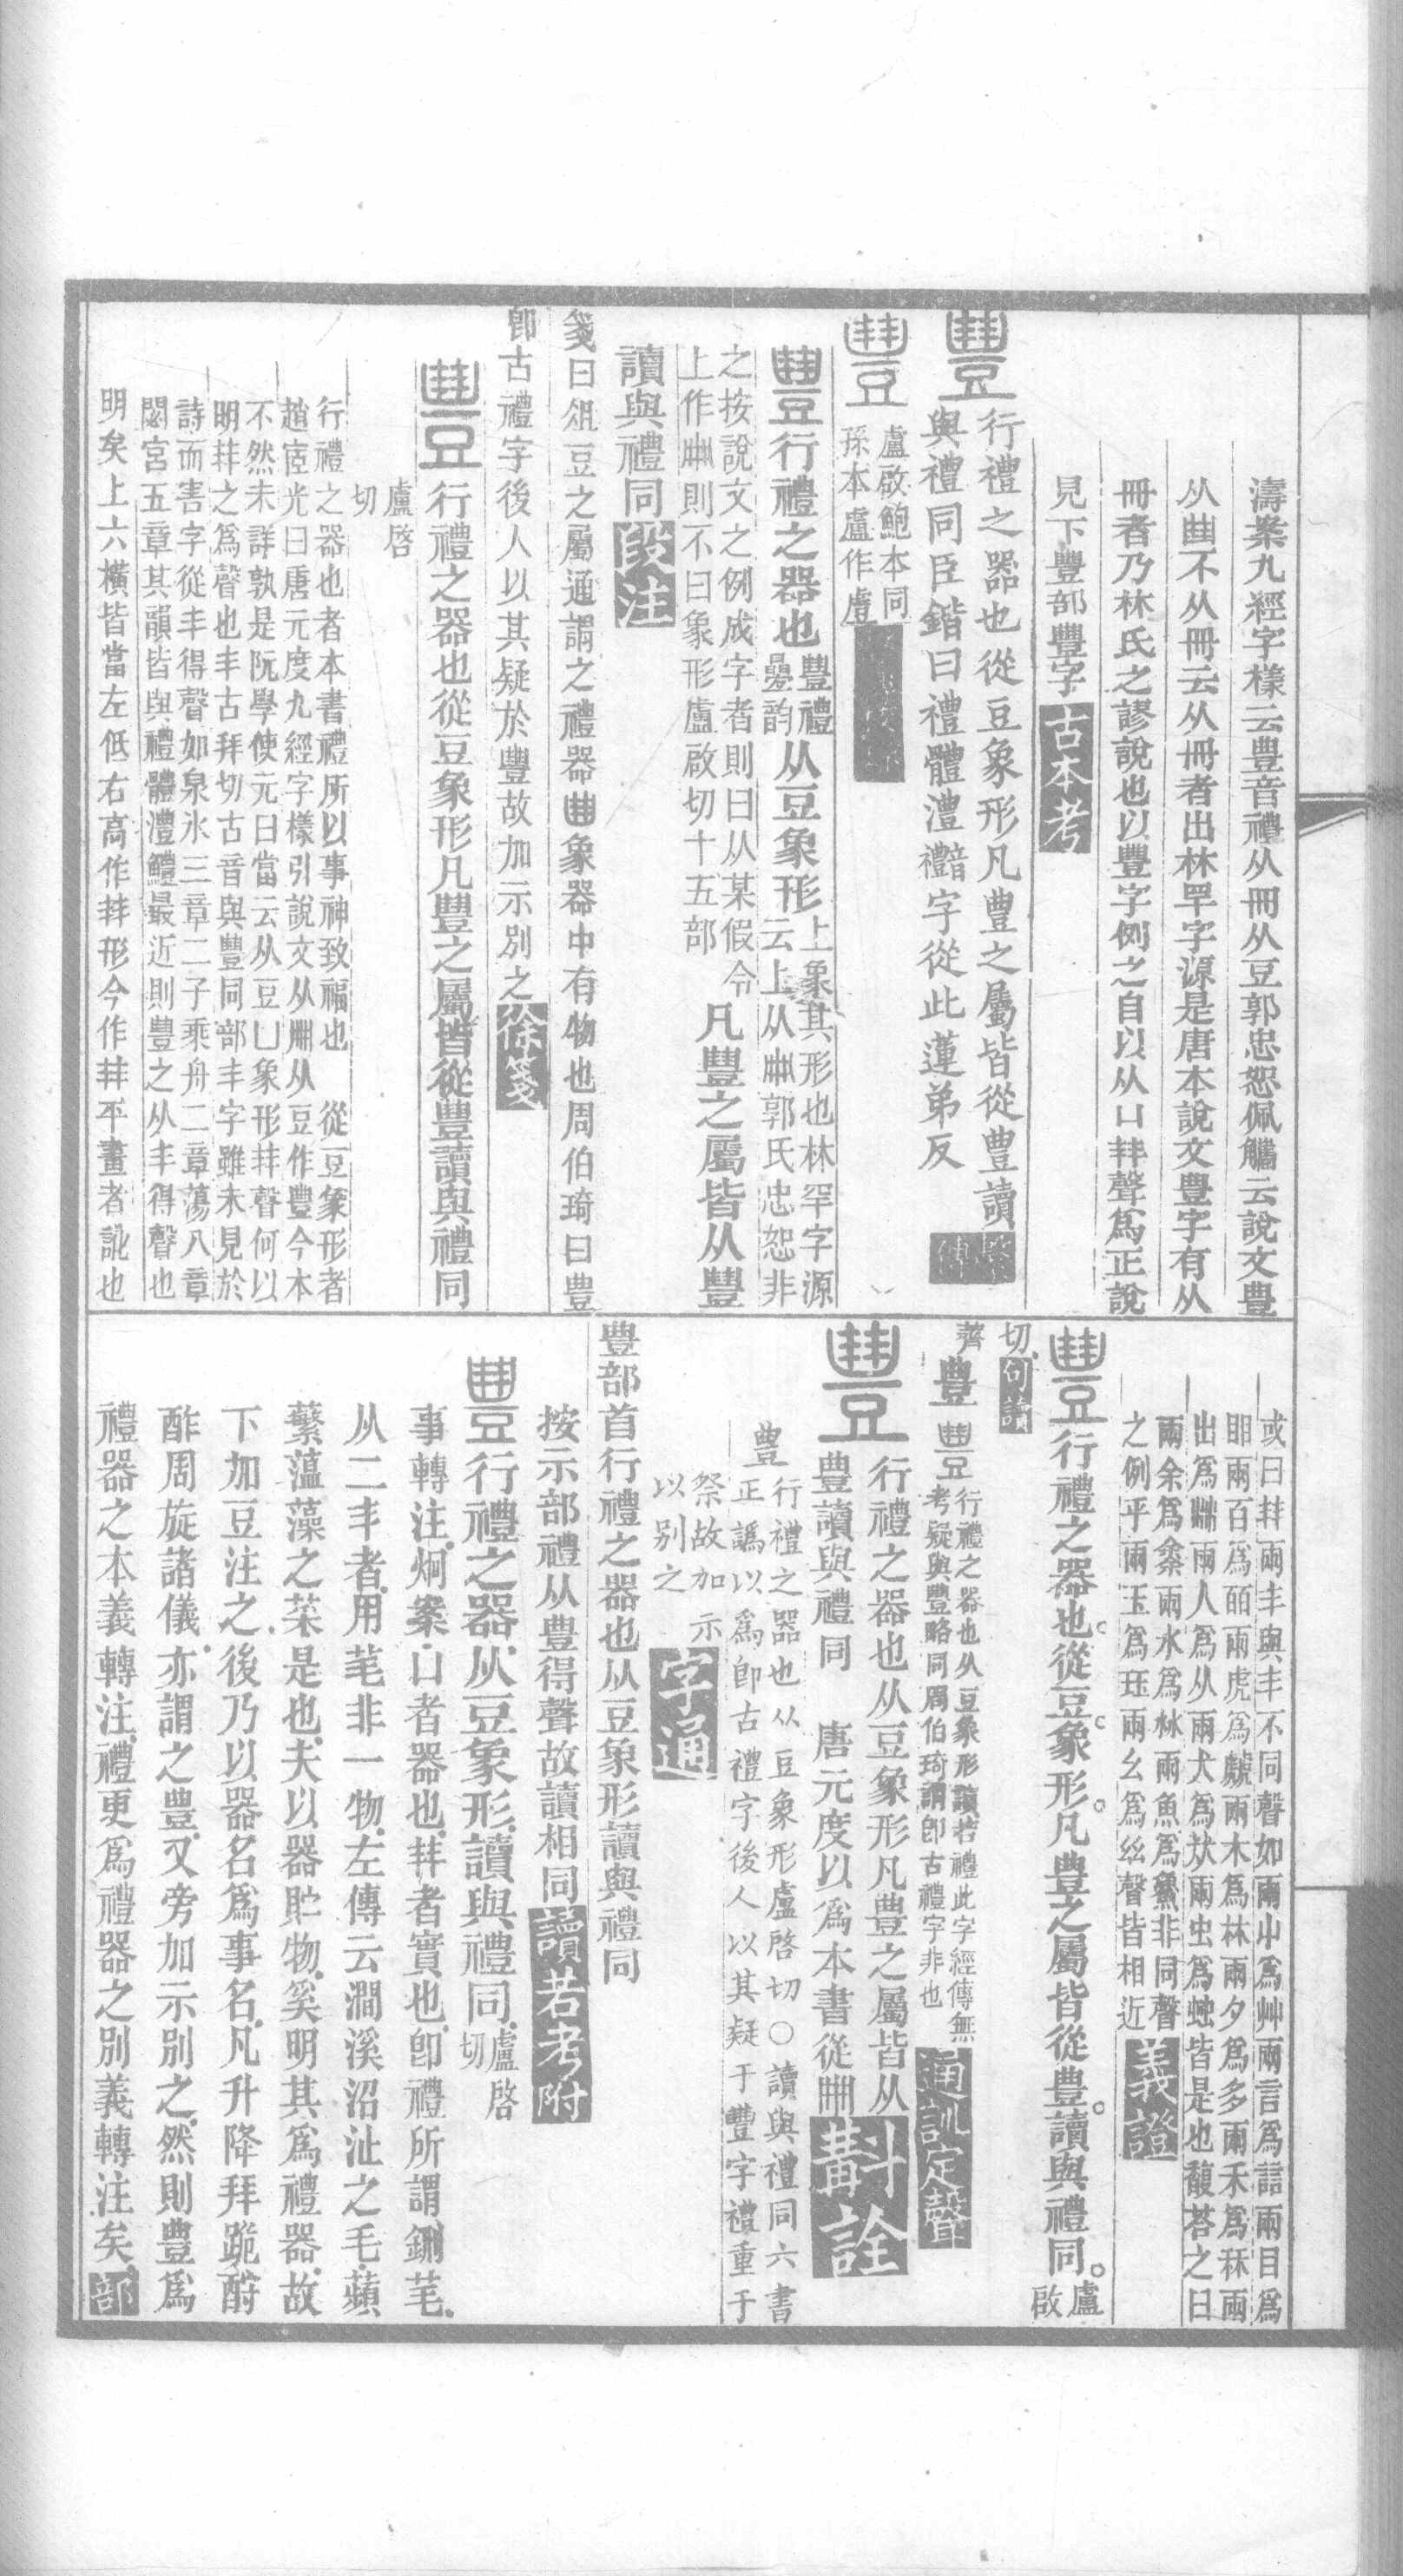 濤案九經字樣云豊音禮从冊从豆郭忠恕佩觿云說文豊
从𠁳不从冊云从冊者出林罕字源是唐本說文豊字有从
冊者乃林氏之謬說也以豐字例之自以从凵𡴀聲爲正說
見下豐部豐字古本考
豊行禮之器也從豆象形凡豊之屬皆從豊讀
與禮同臣鍇曰禮體澧禮字從此蓮弟反
豊盧啟鮑本同
孫本盧作虘
豊行禮之器也豐禮疊韵从豆象形上象其形也林罕字源
云上从𠕋郭氏忠恕非
之按說文之例成字者則曰从某假令
上作𠕋則不曰象形盧啟切十五部
凡豊之屬皆从豊
讀與禮同段注
箋曰俎豆之屬通謂之禮器𠁳象器中有物也周伯琦曰豊
卽古禮字後人以其疑於豐故加示別之徐箋
豊行禮之器也從豆象形凡豊之屬皆從豊讀與禮同
盧啓切
行禮之器也者本書禮所以事神致福也 從豆象形者
趙宧光曰唐元度九經字樣引說文从冊从豆作豊今本
不然未詳孰是阮學使元曰當云从豆凵象形𡴀聲何以
明𡴀之爲聲也丯古拜切古音與豊同部丯字雖未見於
詩而害字從丯得聲如泉水三章二子乘舟二章蕩八章
閟宮五章其韻皆與禮體澧鱧最近則豊之从丯得聲也
明矣上六橫皆當左低右高作𡴀形今作𡴀平畫者訛也
或曰𡴀兩丯與丯不同聲如兩屮爲艸兩言爲誩兩目爲
䀠兩百爲皕兩虎爲虤兩木爲林兩夕爲多兩禾爲秝兩
出爲𡴎兩人爲从兩犬爲㹜兩虫爲䖵皆是也馥荅之曰
兩余爲𠎳兩水爲沝兩魚爲䲆非同聲
之例乎兩玉爲玨兩幺爲𢆶聲皆相近義證
豊行禮之器也。從豆。象形。凡豊之屬皆從豊。讀與禮同。盧啟
切句讀
薺豊豊行禮之器也从豆象形讀若禮此字經傳無
考疑與豐略同周伯琦謂卽古禮字非也通訓定聲
豊行禮之器也从豆象形凡豊之屬皆从
豊讀與禮同 唐元度以爲本書從冊斠詮
豊行禮之器也从豆象形盧啓切○讀與禮同六書
正譌以爲卽古禮字後人以其疑于豐字禮重于
祭故加示
以別之字通
豊部首行禮之器也从豆象形讀與禮同
按示部禮从豊得聲故讀相同讀若考附
豊行禮之器从豆象形讀與禮同盧啓切
事轉注炯案凵者器也𡴀者實也卽禮所謂鉶芼
从二丯者用芼非一物左傳云澗溪沼沚之毛蘋
蘩薀藻之菜是也夫以器貯物奚明其爲禮器故
下加豆注之後乃以器名爲事名凡升降拜跪酧
酢周旋諸儀亦謂之豊又旁加示別之然則豊爲
禮器之本義轉注禮更爲禮器之別義轉注矣部